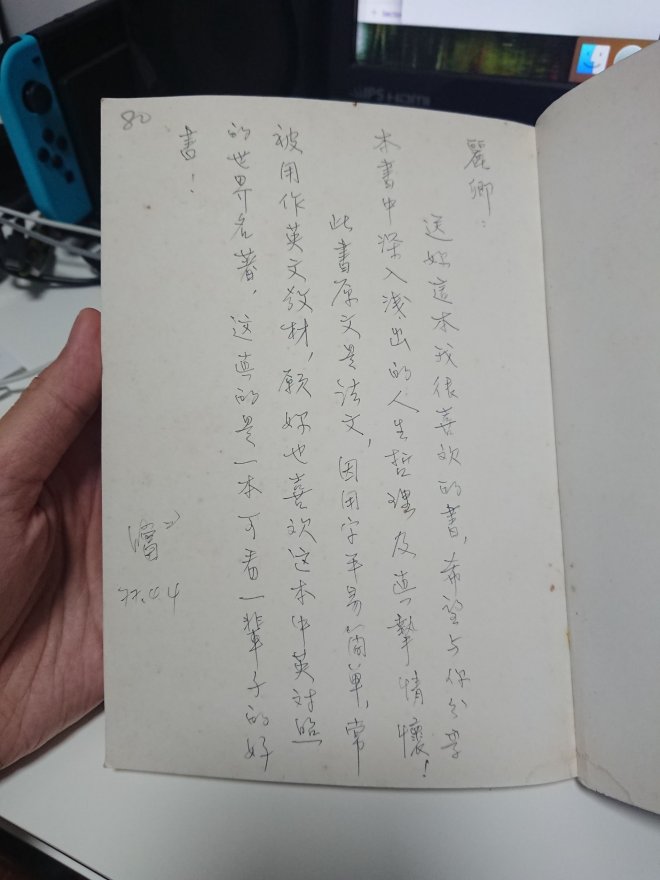 麗卿：
送妳這本我很喜欢的書，希望与你分享
本書中深入浅出的人生哲理及真摯情懷！
此書原文是法文，因用字平易簡單，常
被用作英文教材，願妳也喜欢这本中英对照
的世界名著，这真的是一本可看一輩子的好
書！
77.04.4
80
IPS HDMI